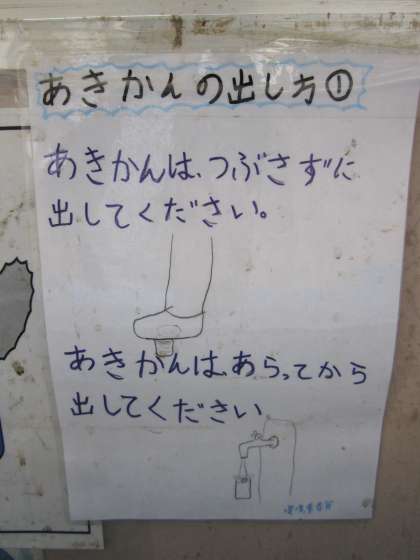 あきかんの出し方①
あきかんは、つぶさずに
出してください。
あきかんは、あらってから
出してください